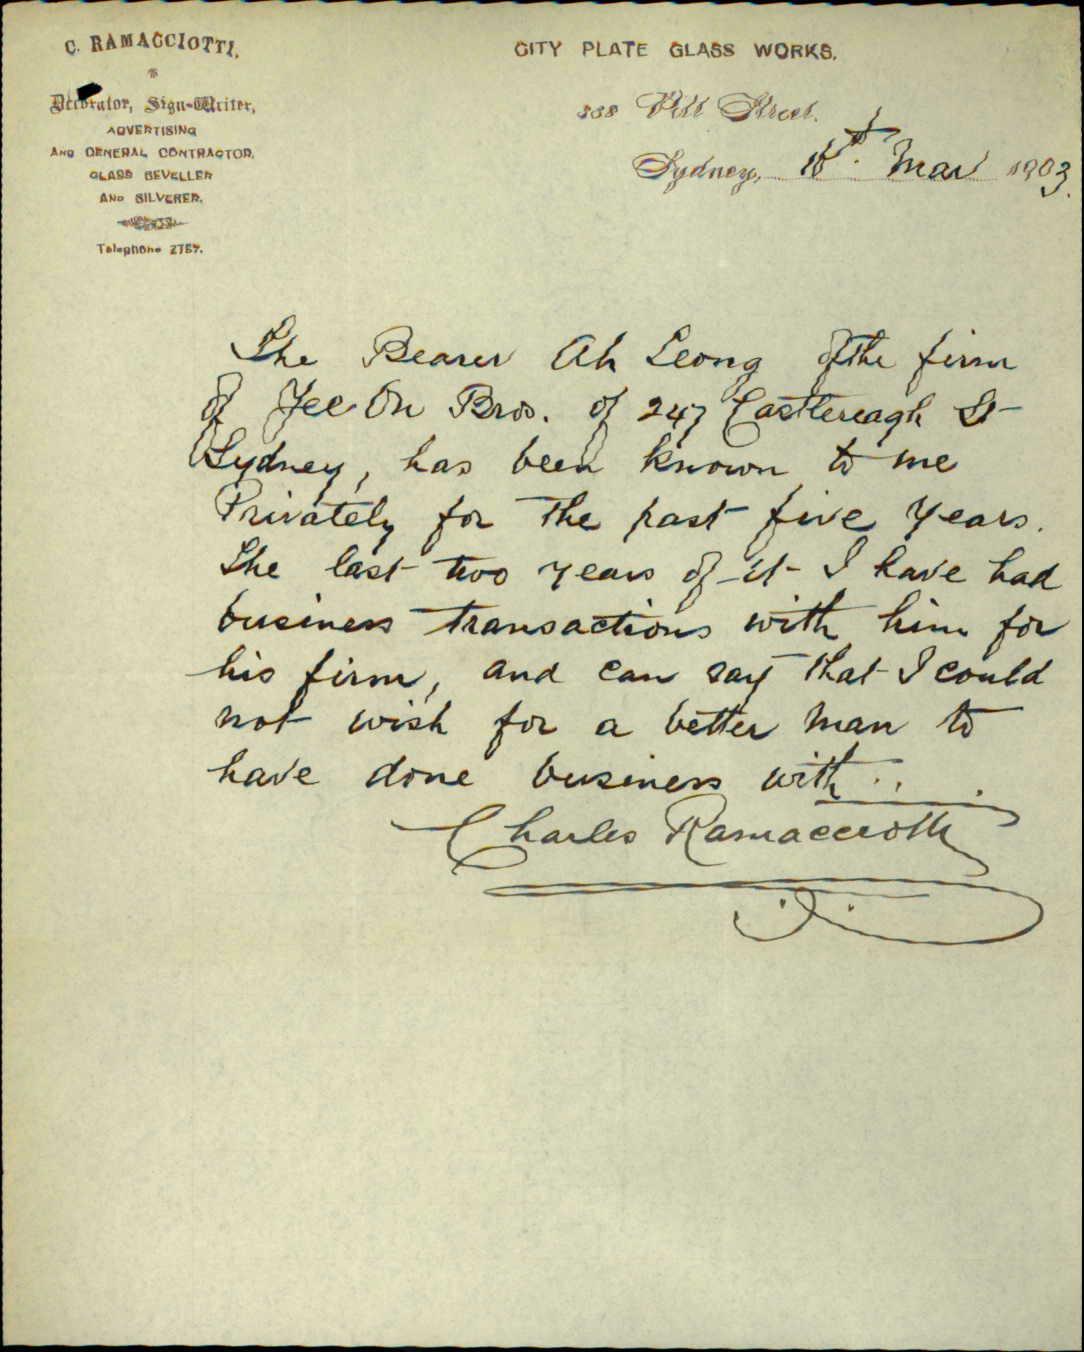 C. RAMACCIOTTI.
Decorator, Sign-Writer,
ADVERTISING
AND GENERAL CONTRACTOR,
GLASS BEVELLER
AND SILVERER.
Telephone 2757.
CITY PLATE GLASS WORKS.
338 Pitt Street.
Sydney, 16th. Mar 1903.
The Bearer Ah Leong of the firm
of Yee On Bros. of 247 Castlereagh St
Sydney, has been known to me
Privately for the past five years.
The last two years of it I have had
business transactions with him for
his firm, and can say that I could
not wish for a better man to
have done business with . . .
Charles Ramacciotti